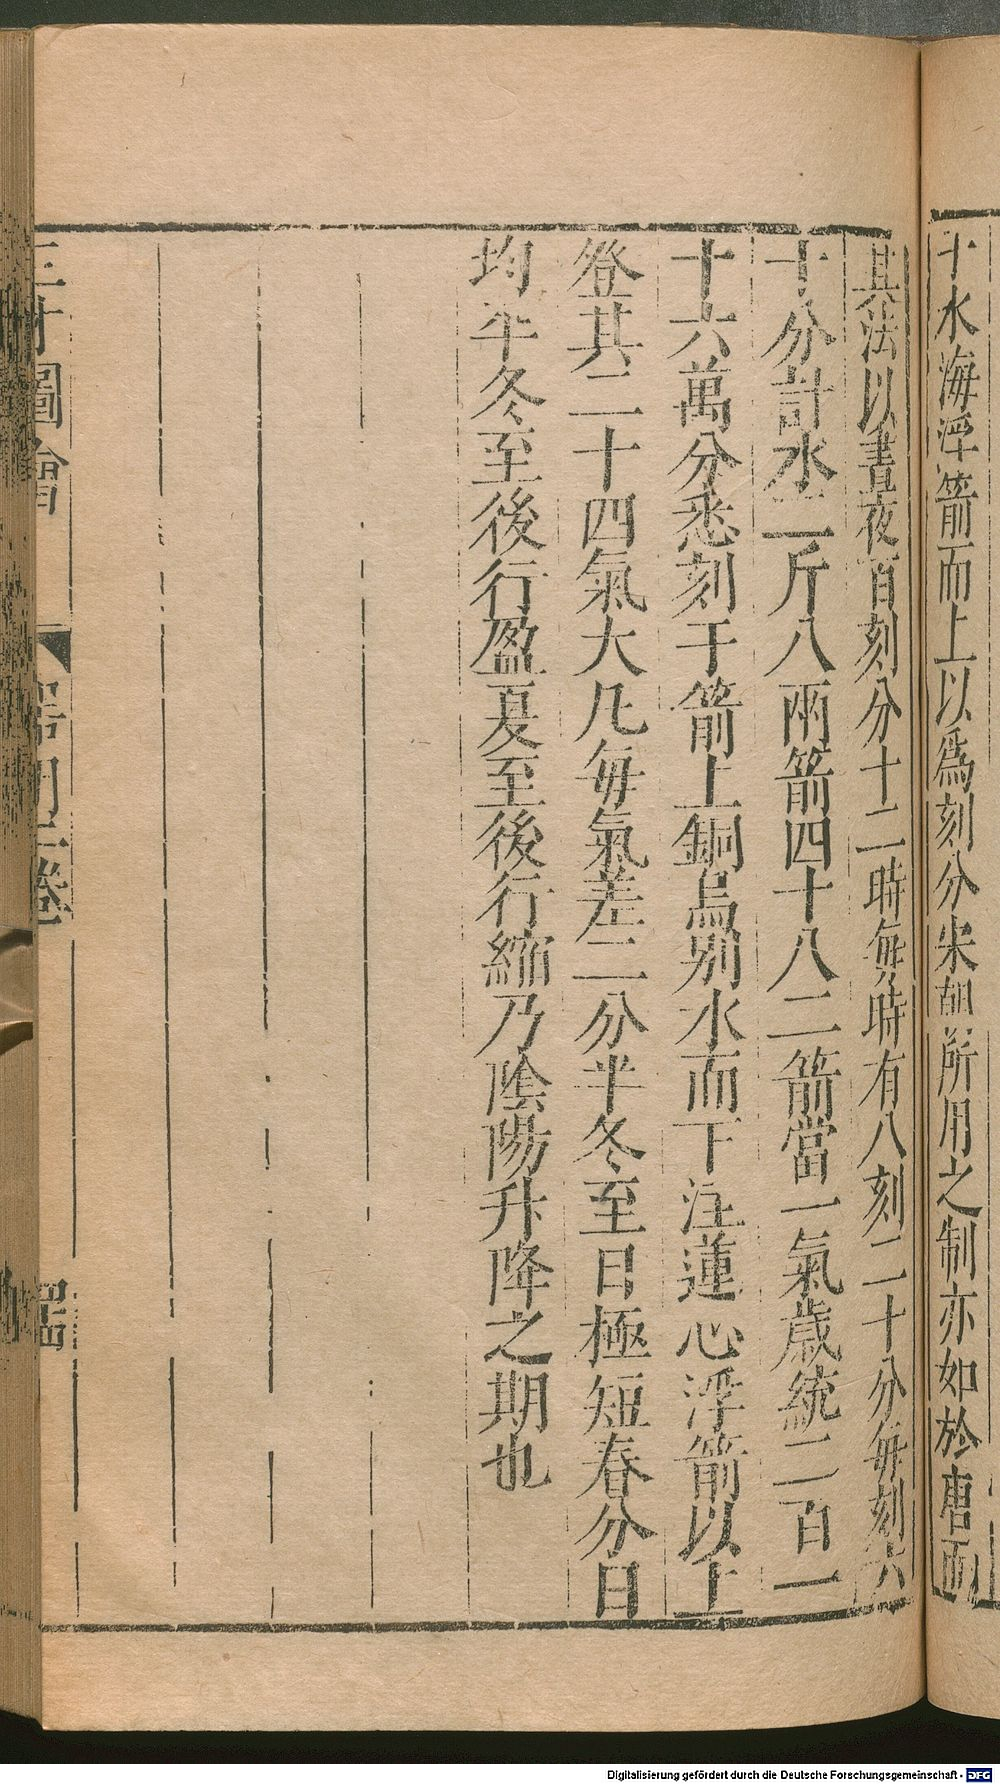 十水海浮箭而上以爲刻分宋朝所用之制亦如於唐而
其法以晝夜百刻分十二時每時有八刻二十分每刻六
十分計水二斤八兩箭四十八二箭當一氣歲統二百一
十六萬分悉刻于箭上銅烏別水而下注蓮心浮箭以上
登其二十四氣大凡每氣差二分半冬至日極短春分日
均半冬至後行盈夏至後行縮乃陰陽升降之期也
三才圖會 器用二卷
Digitalisierung gefördert durch die Deutsche Forschungsgemeinschaft - DFG